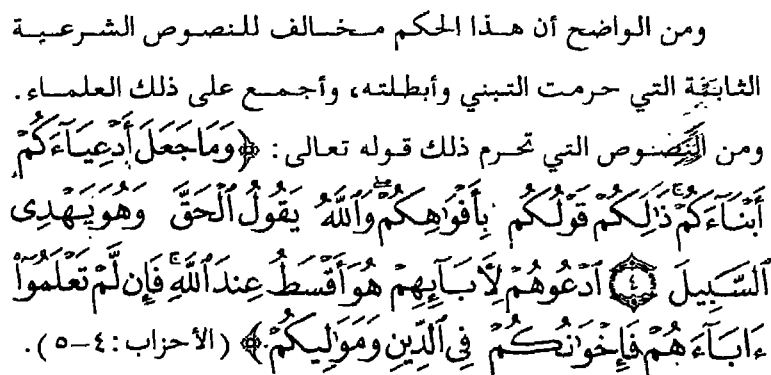 ومن الواضح أن هذا الحكم مخالف للنصوص الشرعية
الثابتة التي حرمت التبني وأبطلته، وأجمع على ذلك العلماء.
ومن النصوص التي تحرم ذلك قوله تعالى: ﴿وَمَا جَعَلَ أَدْعِيَآءَكُمْ
أَبْنَآءَكُمْ ۚ ذَٰلِكُمْ قَوْلُكُم بِأَفْوَٰهِكُمْ ۖ وَٱللَّهُ يَقُولُ ٱلْحَقَّ وَهُوَ يَهْدِى
ٱلسَّبِيلَ ۝٤ ٱدْعُوهُمْ لِأَبَآئِهِمْ هُوَ أَقْسَطُ عِندَ ٱللَّهِ ۚ فَإِن لَّمْ تَعْلَمُوٓا۟
ءَابَآءَهُمْ فَإِخْوَٰنُكُمْ فِى ٱلدِّينِ وَمَوَٰلِيكُمْ﴾ (الأحزاب: ٤–٥).